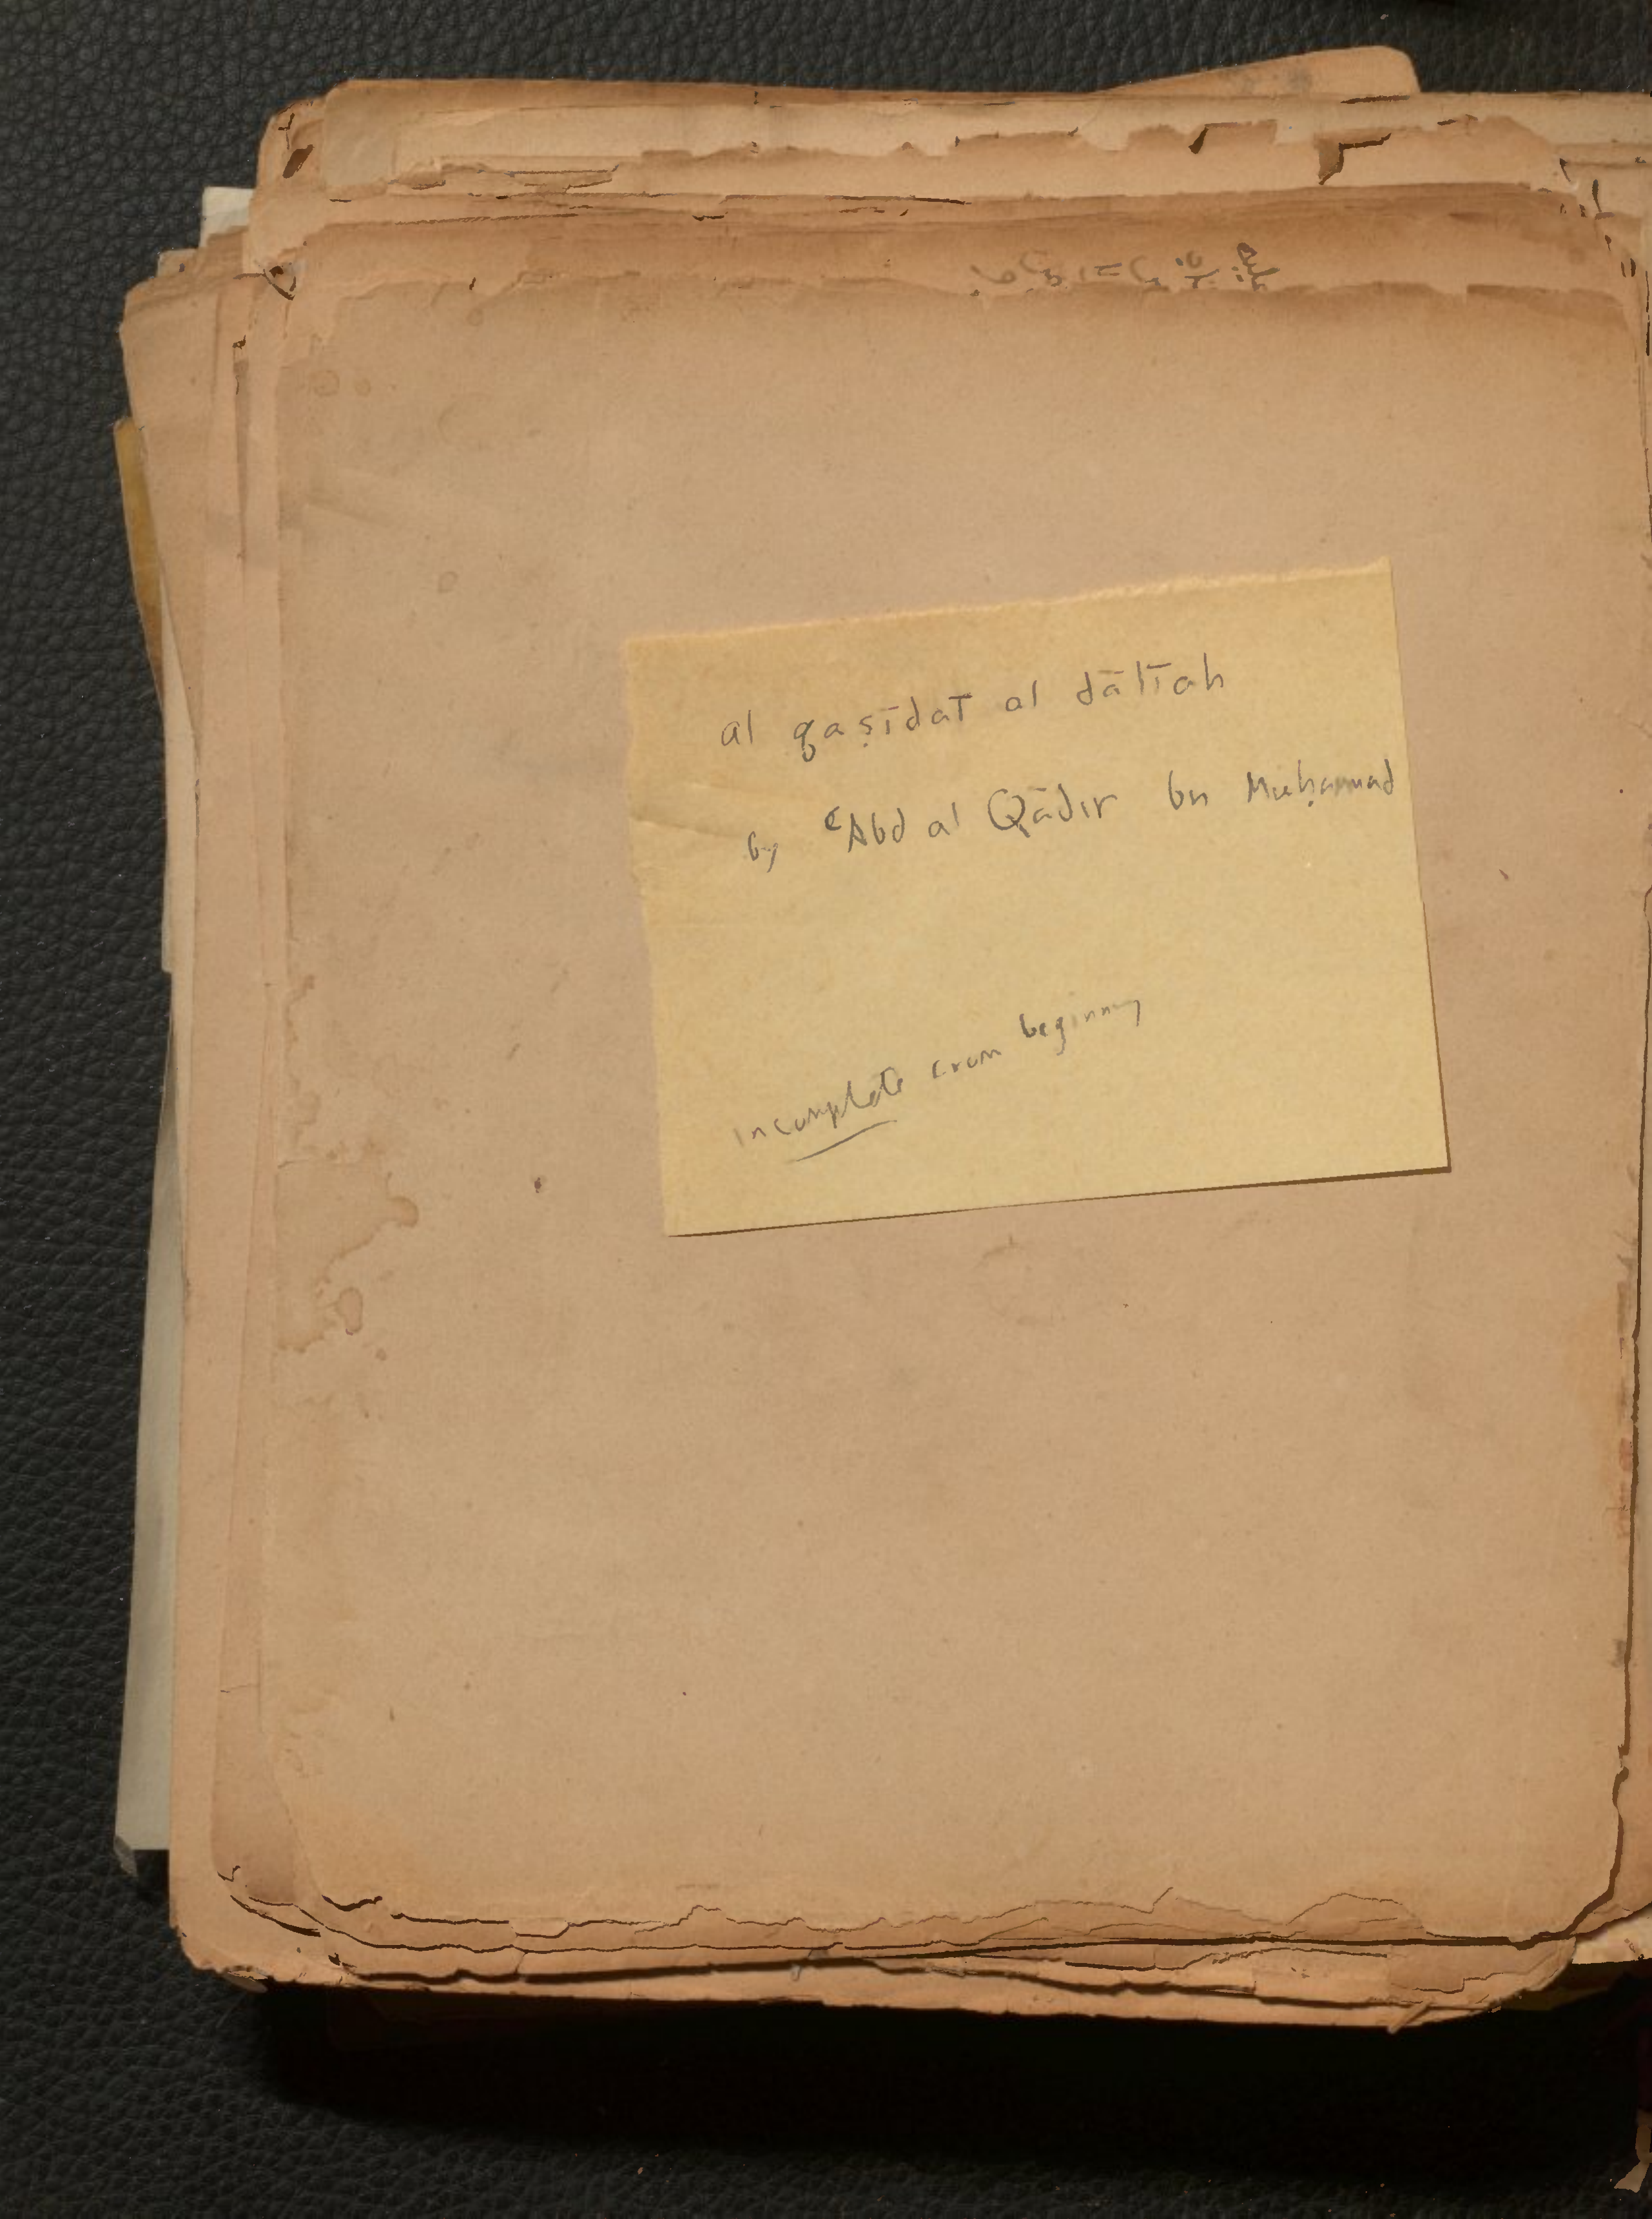 al qaṣīdat al dālīah
by ʿAbd al Qādir bn Muḥammad
incomplete from beginning